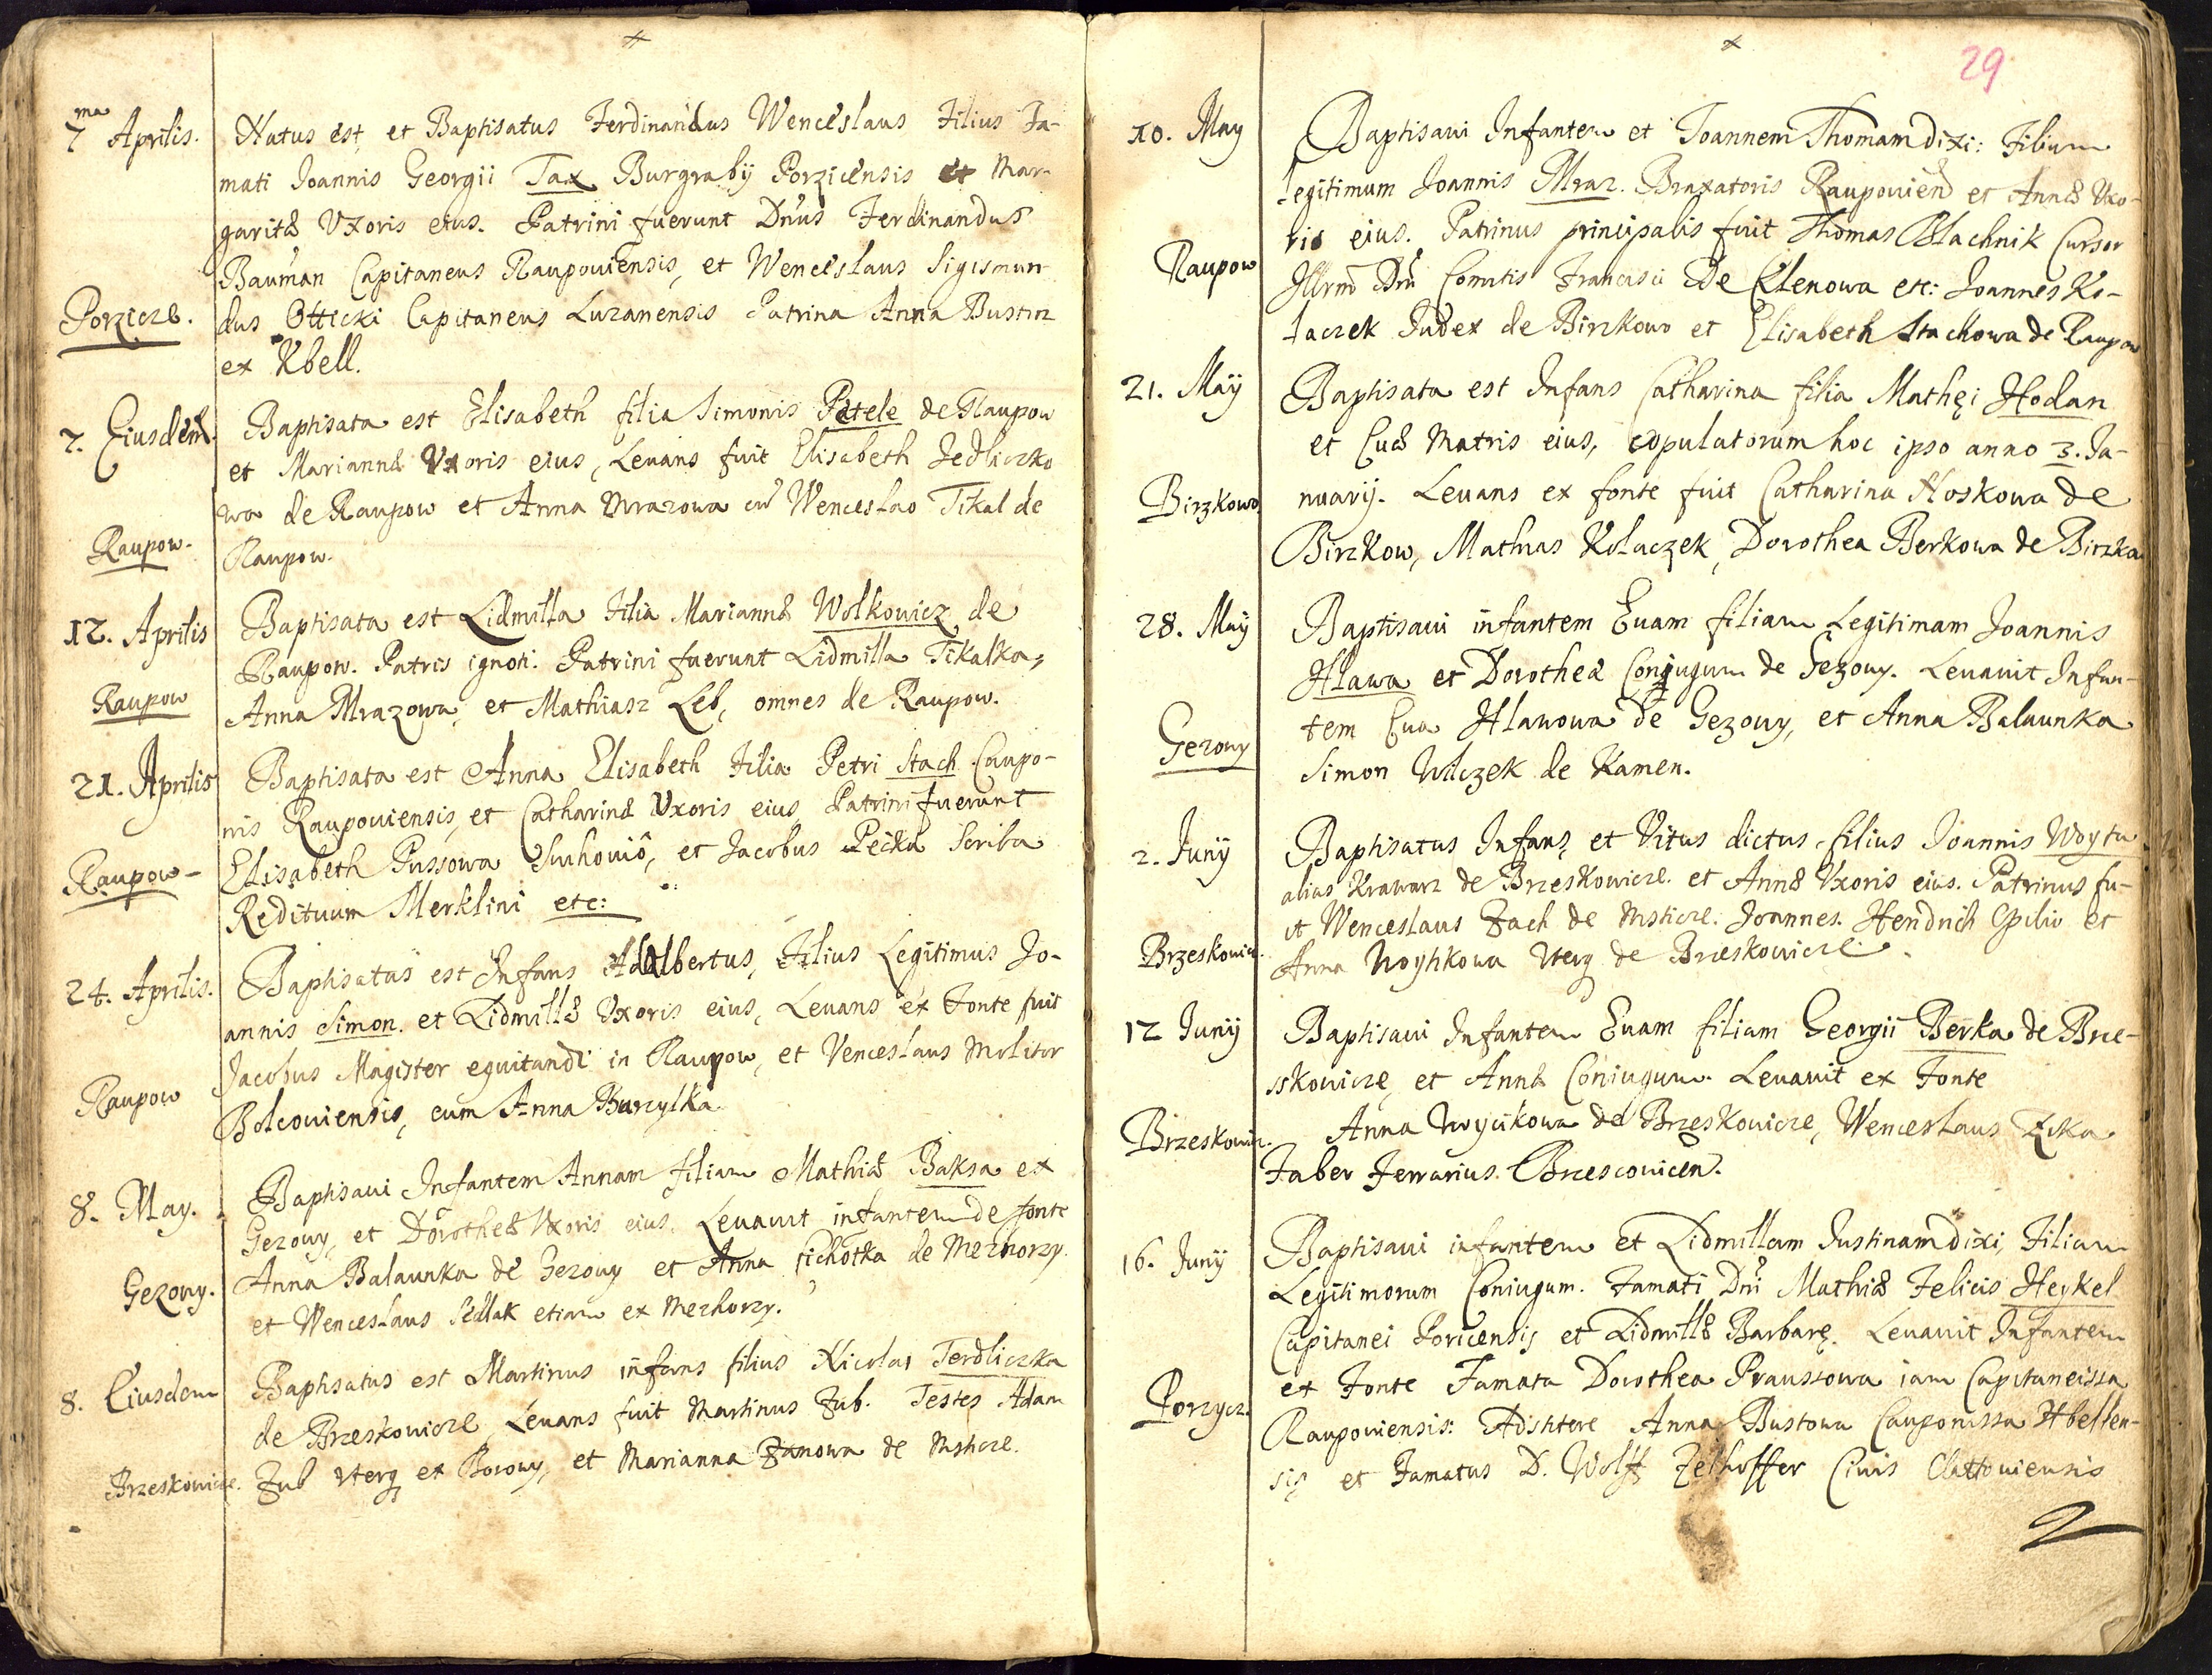 7ma Aprilis. Natus est, et Baptisatus Ferdinandus Wenceslaus Filius Fa-
mati Joannis Georgii Tax Burgrabij Porzicensis et Mar-
garitæ Vxoris eius. Patrini fuerunt Dnus Ferdinandus
Bauman Capitaneus Raupouiensis, et Wenceslaus Sigismun-
Porzicze. dus Otticki Capitaneus Luzanensis Patrina Anna Bustin
ex Kbell.
7. Eiusdem. Baptisata est Elisabeth filia Simonis Petele de Raupow
et Mariannæ Vxoris eius, Leuans fuit Elisabeth Jedliczko
wa de Raupow et Anna Mrazowa cu Wenceslao Tikal de
Raupow. Raupow.
12. Aprilis Baptisata est Lidmilla Filia Mariannæ Wolkowicz de
Raupow. Patris ignoti. Patrini fuerunt Lidmilla Tikalka,
Raupow Anna Mrazowa, et Mathiasz Leb, omnes de Raupow.
21. Aprilis Baptisata est Anna Elisabeth Filia Petri Stach Caupo-
nis Raupouiensis, et Catharinæ Vxoris eius, Patrini fuerunt
Raupow- Elisabeth Pussowa, et Jacobus Pecka Scriba
Redituum Merklini etc:
24. Aprilis. Baptisatus est Infans Adalbertus, Filius Legitimus Jo-
annis Simon. et Lidmillæ Vxoris eius, Leuans ex Fonte fuit
Jacobus Magister equitandi in Raupow, et Venceslaus Molitor
Raupow Bolcouiensis, cum Anna Burzylka
8. May. Baptisaui Infantem Annam filiam Mathiæ Baksa ex
Gezowy, et Dorotheæ Vxoris eius. Leuauit infantem de fonte
Anna Balaunka de Gezouy et Anna Sichotka de Mezhorzy.
Gezouy. et Wenceslaus Sedlak etiam ex Mezhorzy.
8. Eiusdem Baptisatus est Martinus infans filius Nicolai Terdliczka
de Brzeskowicze, Leuans fuit Martinus Zub. Testes Adam
Brzeskowicze. Zub Uterq ex Borowy, et Marianna Zanowa de Msticze.
29
10. May Baptisaui Infantem et Joannem Thomam dixi: Filium
Legitimum Joannis Mraz. Braxatoris Raupouien et Annæ Vxo-
ris eius. Patrinus principalis fuit Thomas Blachnik Cursor
Raupow Illrmi Dni Comitis Francisci De Klenowa etc: Joannes Ko-
laczek Judex de Birzkowo et Elisabeth Stachowa de Raupow
21. Maÿ Baptisata est Infans Catharina filia Mathęi Hodan
et Euæ Matris eius, copulatorum hoc ipso anno 3. Ja-
Birzkowo nuarij. Leuans ex fonte fuit Catharina Noskowa de
Birzkow, Mathias Kolaczek, Dorothea Berkowa de Birzko
28. Maÿ Baptisaui infantem Euam filiam Legitimam Joannis
Hlawa et Dorotheæ Coniugum de Gezouy. Leuauit Infan-
tem Eua Hlawowa de Gezouy, et Anna Balaunka
Gezouy Simon Wlczek de Kamen.
2. Junÿ Baptisatus Infans, et Vitus dictus, filius Joannis Woytu
alias Krawarz de Brzeskowicze. et Annæ Vxoris eius. Patrinus fu-
it Wenceslaus Zach de Msticze. Joannes. Hendrich Opilio et
Brzeskowicz. Anna Woytikowa Uterq de Brzeskowicze.
12 Junij Baptisaui Infantem Euam filiam Georgii Berka de Brze-
skowicze, et Annæ Coniugum. Leuauit ex Fonte
Brzeskowicz. Anna Woycikowa de Brzeskowicze, Wenceslaus Zika
Faber Ferrarius. Brzescouicen.
16. Junÿ Baptisaui infantem et Lidmillam Justinam dixi, Filiam
Legitimorum Coniugum. Famati Dni Mathiæ Felicis Heykel
Capitanei Poricensis et Lidmillæ Barbarę. Leuauit Infantem
ex Fonte Famata Dorothea Praussowa iam Capitaneissa
Porzycz. Raupouiensis: Adistere Anna Bustowa Cauponissa Kbellen-
sis et Famatus D. Wolff Zelhoffer Ciuis Clattouiensis